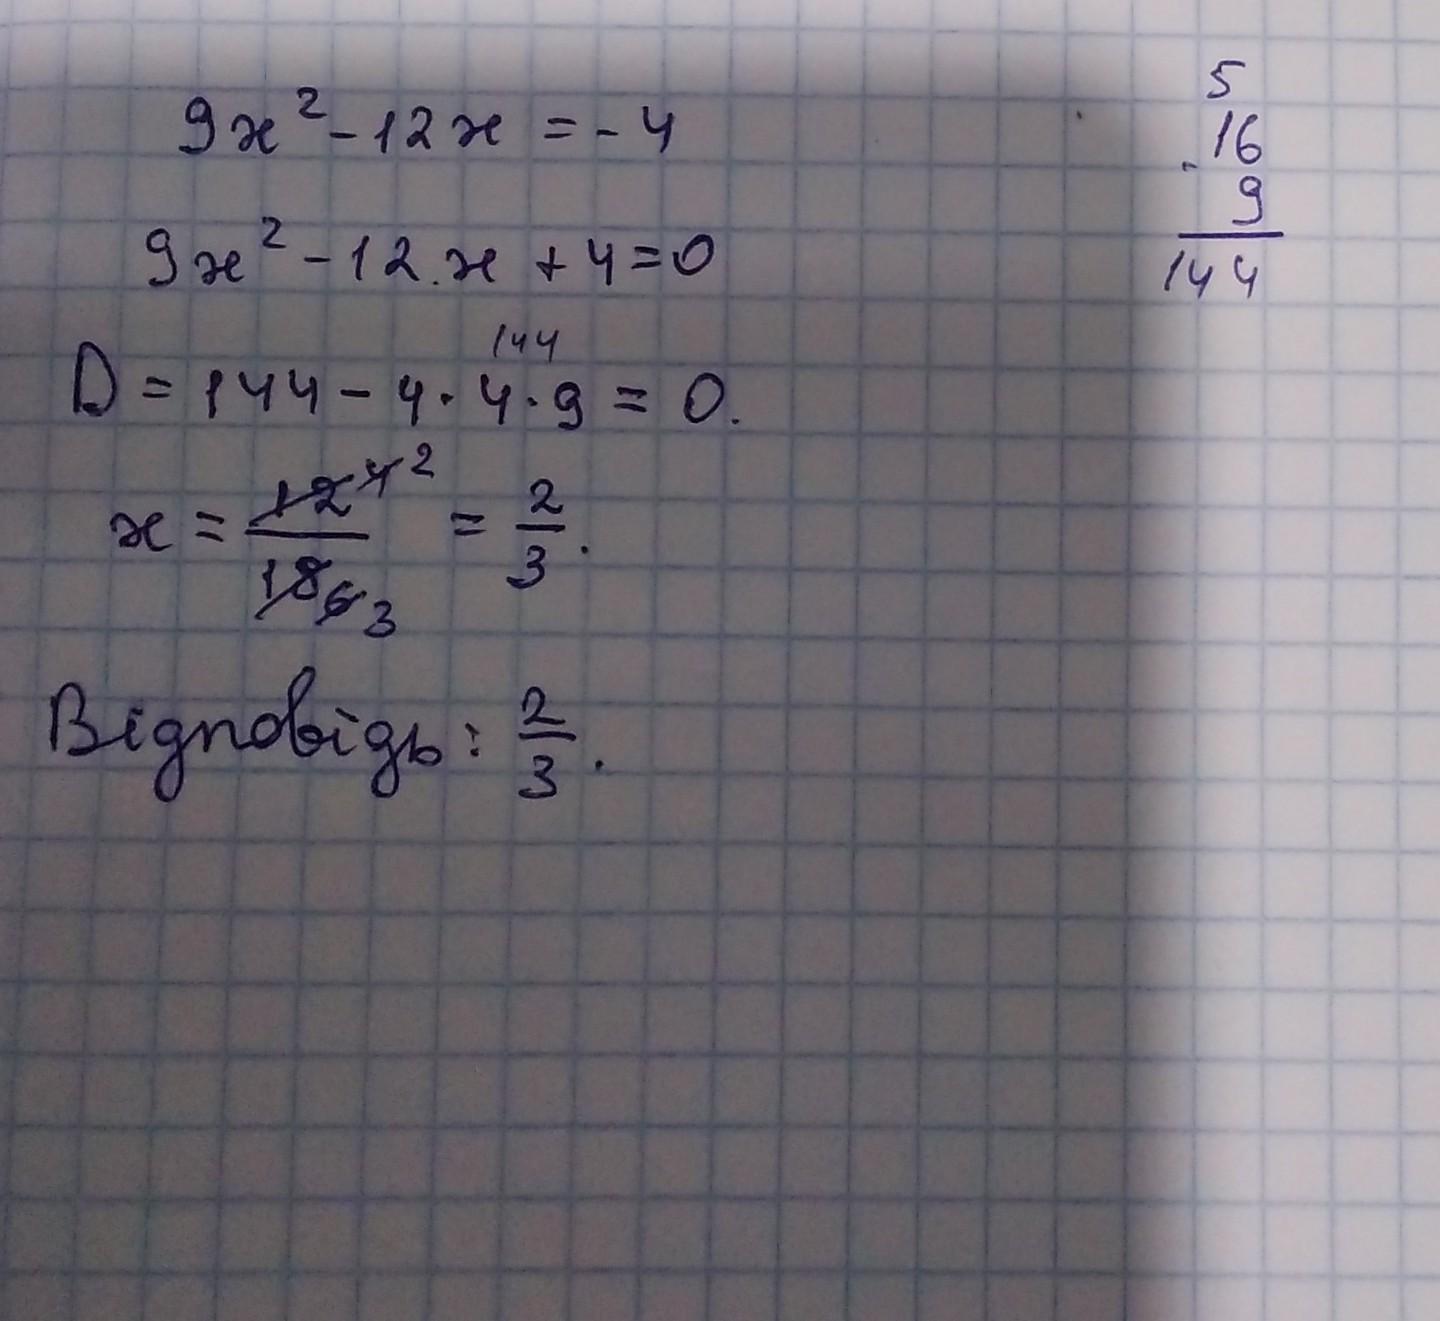 9x² - 12x = - 4
9x² - 12.x + 4 = 0
144
D = 144 - 4 · 4 · 9 = 0.
x = 12 4 2 / 18 6 3 = 2/3.
Відповідь: 2/3.
5
16
· 9
144